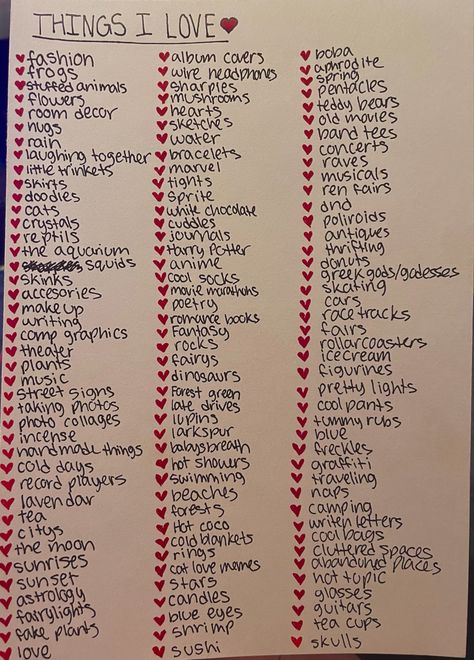 THINGS I LOVE
fashion
frogs
stuffed animals
flowers
room decor
hugs
rain
laughing together
little trinkets
skirts
doodles
cats
crystals
reptils
the aquarium
squids
skinks
accesories
make up
writing
comp graphics
theater
plants
music
street signs
taking photos
photo collages
incense
handmade things
cold days
record players
lavendar
tea
citys
the moon
sunrises
sunset
astrology
fairylights
fake plants
love
album covers
wire headphones
sharpies
mushrooms
hearts
sketches
water
bracelets
marvel
tights
sprite
white chocolate
cuddles
journals
harry Potter
anime
cool socks
movie marathons
poetry
romance books
Fantasy
rocks
fairys
dinosaurs
Forest green
late drives
lupins
larkspur
babysbreath
hot showers
swimming
beaches
forests
Hot coco
cold blankets
rings
cat love memes
stars
candles
blue eyes
shrimp
sushi
boba
aphrodite
spring
pentacles
teddy bears
old movies
band tees
concerts
raves
musicals
ren fairs
dnd
poliroids
antiques
thrifting
donuts
greek gods/godesses
skating
cars
race tracks
fairs
rollarcoasters
icecream
figurines
pretty lights
cool pants
tummy rubs
blue
freckles
graffiti
traveling
naps
camping
writen letters
cool bags
cluttered spaces
abandoned places
hot topic
glasses
guitars
tea cups
skulls